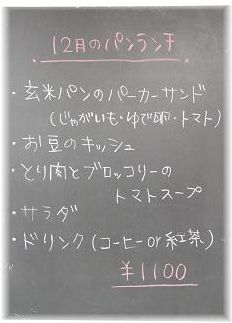 12月のパンランチ
・玄米パンのパーカーサンド
(じゃがいも・ゆで卵・トマト)
・お豆のキッシュ
・とり肉とブロッコリーの
トマトスープ
・サラダ
・ドリンク(コーヒーor紅茶)
¥1100